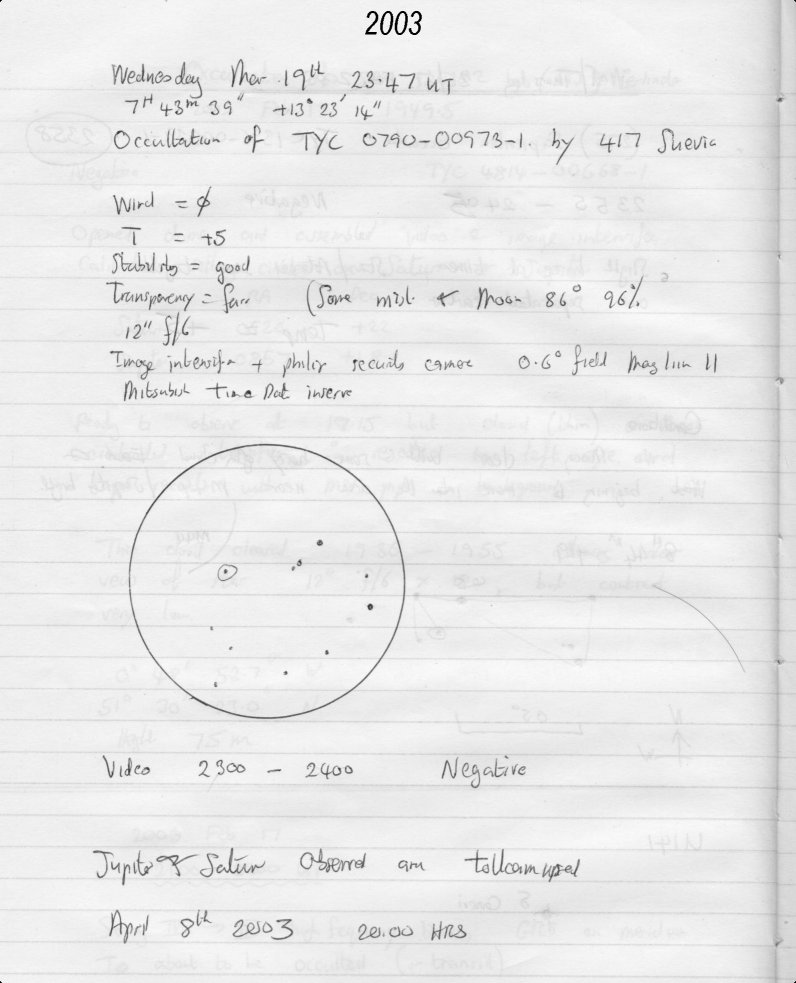 2003
Wednesday Mar 19th 23.47 UT
7H 43m 39" +13° 23' 14"
Occultation of TYC 0790-00973-1. by 417 Suevia
Wind = ϕ
T = +5
Stability = good
Transparency = fair (Some mist & Moon 86° 96%.
12" f/6
Image intensifier + philips security camera 0.6° field Mag lim 11
Mitsubish Time Dat inserve
Video 2300 - 2400 Negative
Jupiter & Saturn Observed
April 8th 2003 20.00 HRS